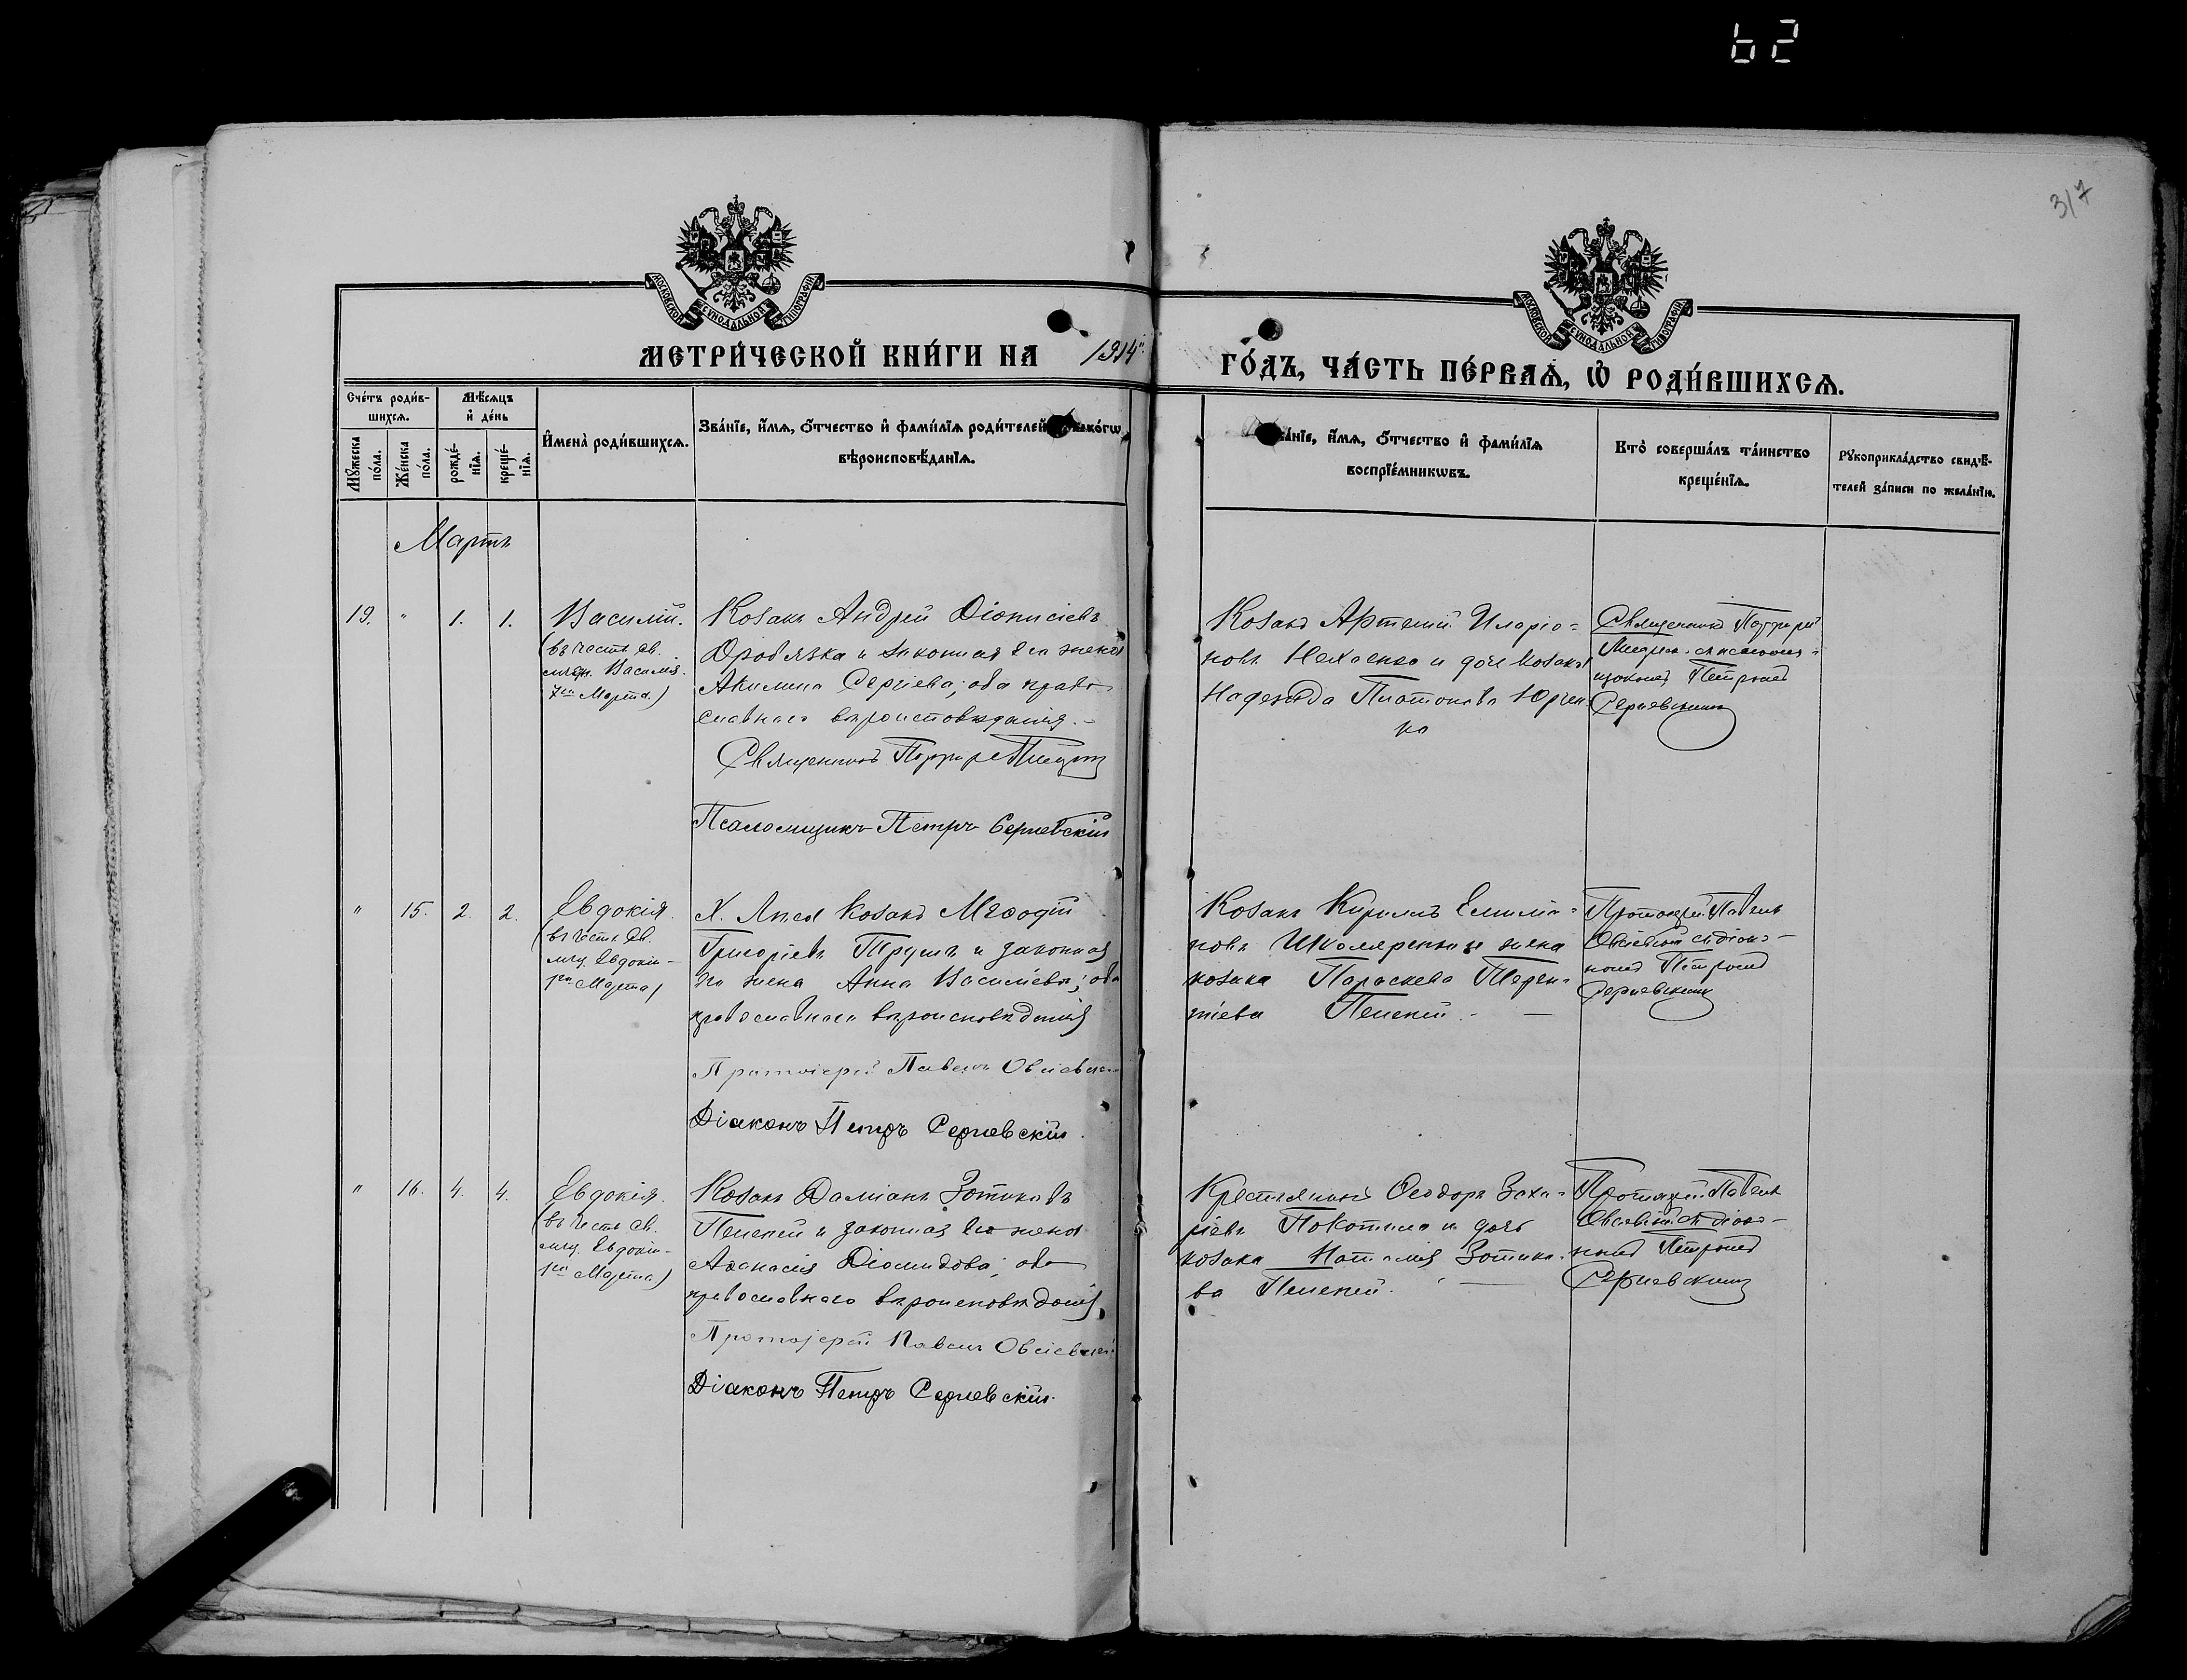 62
317
МОСКОВСКОЙ СУНОДАЛЬНОЙ ТИПОГРАФІИ
МОСКОВСКОЙ СУНОДАЛЬНОЙ ТИПОГРАФІИ
МЕТРИ́ЧЕСКОЙ КНИ́ГИ НА 1914
ГО́ДЪ, ЧА́СТЬ ПЕ́РВАѦ, Ѡ҆ РОДИ́ВШИХСѦ.
Сче́тъ роди́в-
шихсѧ.
Мꙋ́жеска
по́ла.
Же́нска
по́ла.
Мѣ́сѧцъ
и҆ де́нь
рожде́-
нїѧ.
креще́-
нїѧ.
И҆мена̀ роди́вшихсѧ.
Зва́нїе, и҆́мѧ, ѻ҆́тчество и҆ фами́лїѧ роди́телей ко́гѡ
вѣроисповѣ́данїѧ.
а́нїе, и҆́мѧ, ѻ҆́тчество и҆ фами́лїѧ
воспрїе́мникѡвъ.
Кто̀ соверша́лъ та́инство
креще́нїѧ.
Рꙋкоприкла́дство свидѣ́-
телей за́писи по жела́нїю.
Мартъ
19. " 1. 1.
Василій.
(въ честь св.
Василія
7го Марта)
Козакъ Андрей Діонисіевъ
Дробязка и законная его жена
Акилина Сергіева; оба право-
славнаго вѣроисповѣданія.
Священникъ
Псаломщикъ Петръ Сергіевскій
Козакъ Артемій Иларіо-
новъ Нехаенко и дочь козака
Надежда Платонова Юрчен-
ко
Священникъ Порфирій
съ псалом-
щикомъ Петромъ
Сергіевскимъ
" 15. 2. 2.
Евдокія.
(въ честь св.
мчц. Евдокіи
1го Марта)
Х. Лиса Козакъ Меѳодій
Григоріевъ Трушъ и законная
его жена Анна Васильева; оба
православнаго вѣроисповѣданія
Протоіерей Павелъ
Діаконъ Петръ Сергіевскій.
Козакъ Кириллъ Емилiа-
новъ Школяренко и жена
козака Параскева Терен-
тіева Пелепей.
Протоіерей Павелъ
съ діако-
номъ Петромъ
Сергіевскимъ
" 16. 4. 4.
Евдокія.
(въ честь св.
мчц. Евдокіи
1го Марта)
Козакъ Даміанъ Зотиковъ
Пелепей и законная его жена
Аѳанасія Діомидова; оба
православнаго вѣроисповѣданія
Протоіерей Павелъ
Діаконъ Петръ Сергіевскій.
Крестьянинъ Ѳеодоръ Заха-
ріевъ Покотило и дочь
козака Наталія Зотико-
ва Пелепей.
Протоіерей Павелъ
съ діако-
номъ Петромъ
Сергіевскимъ